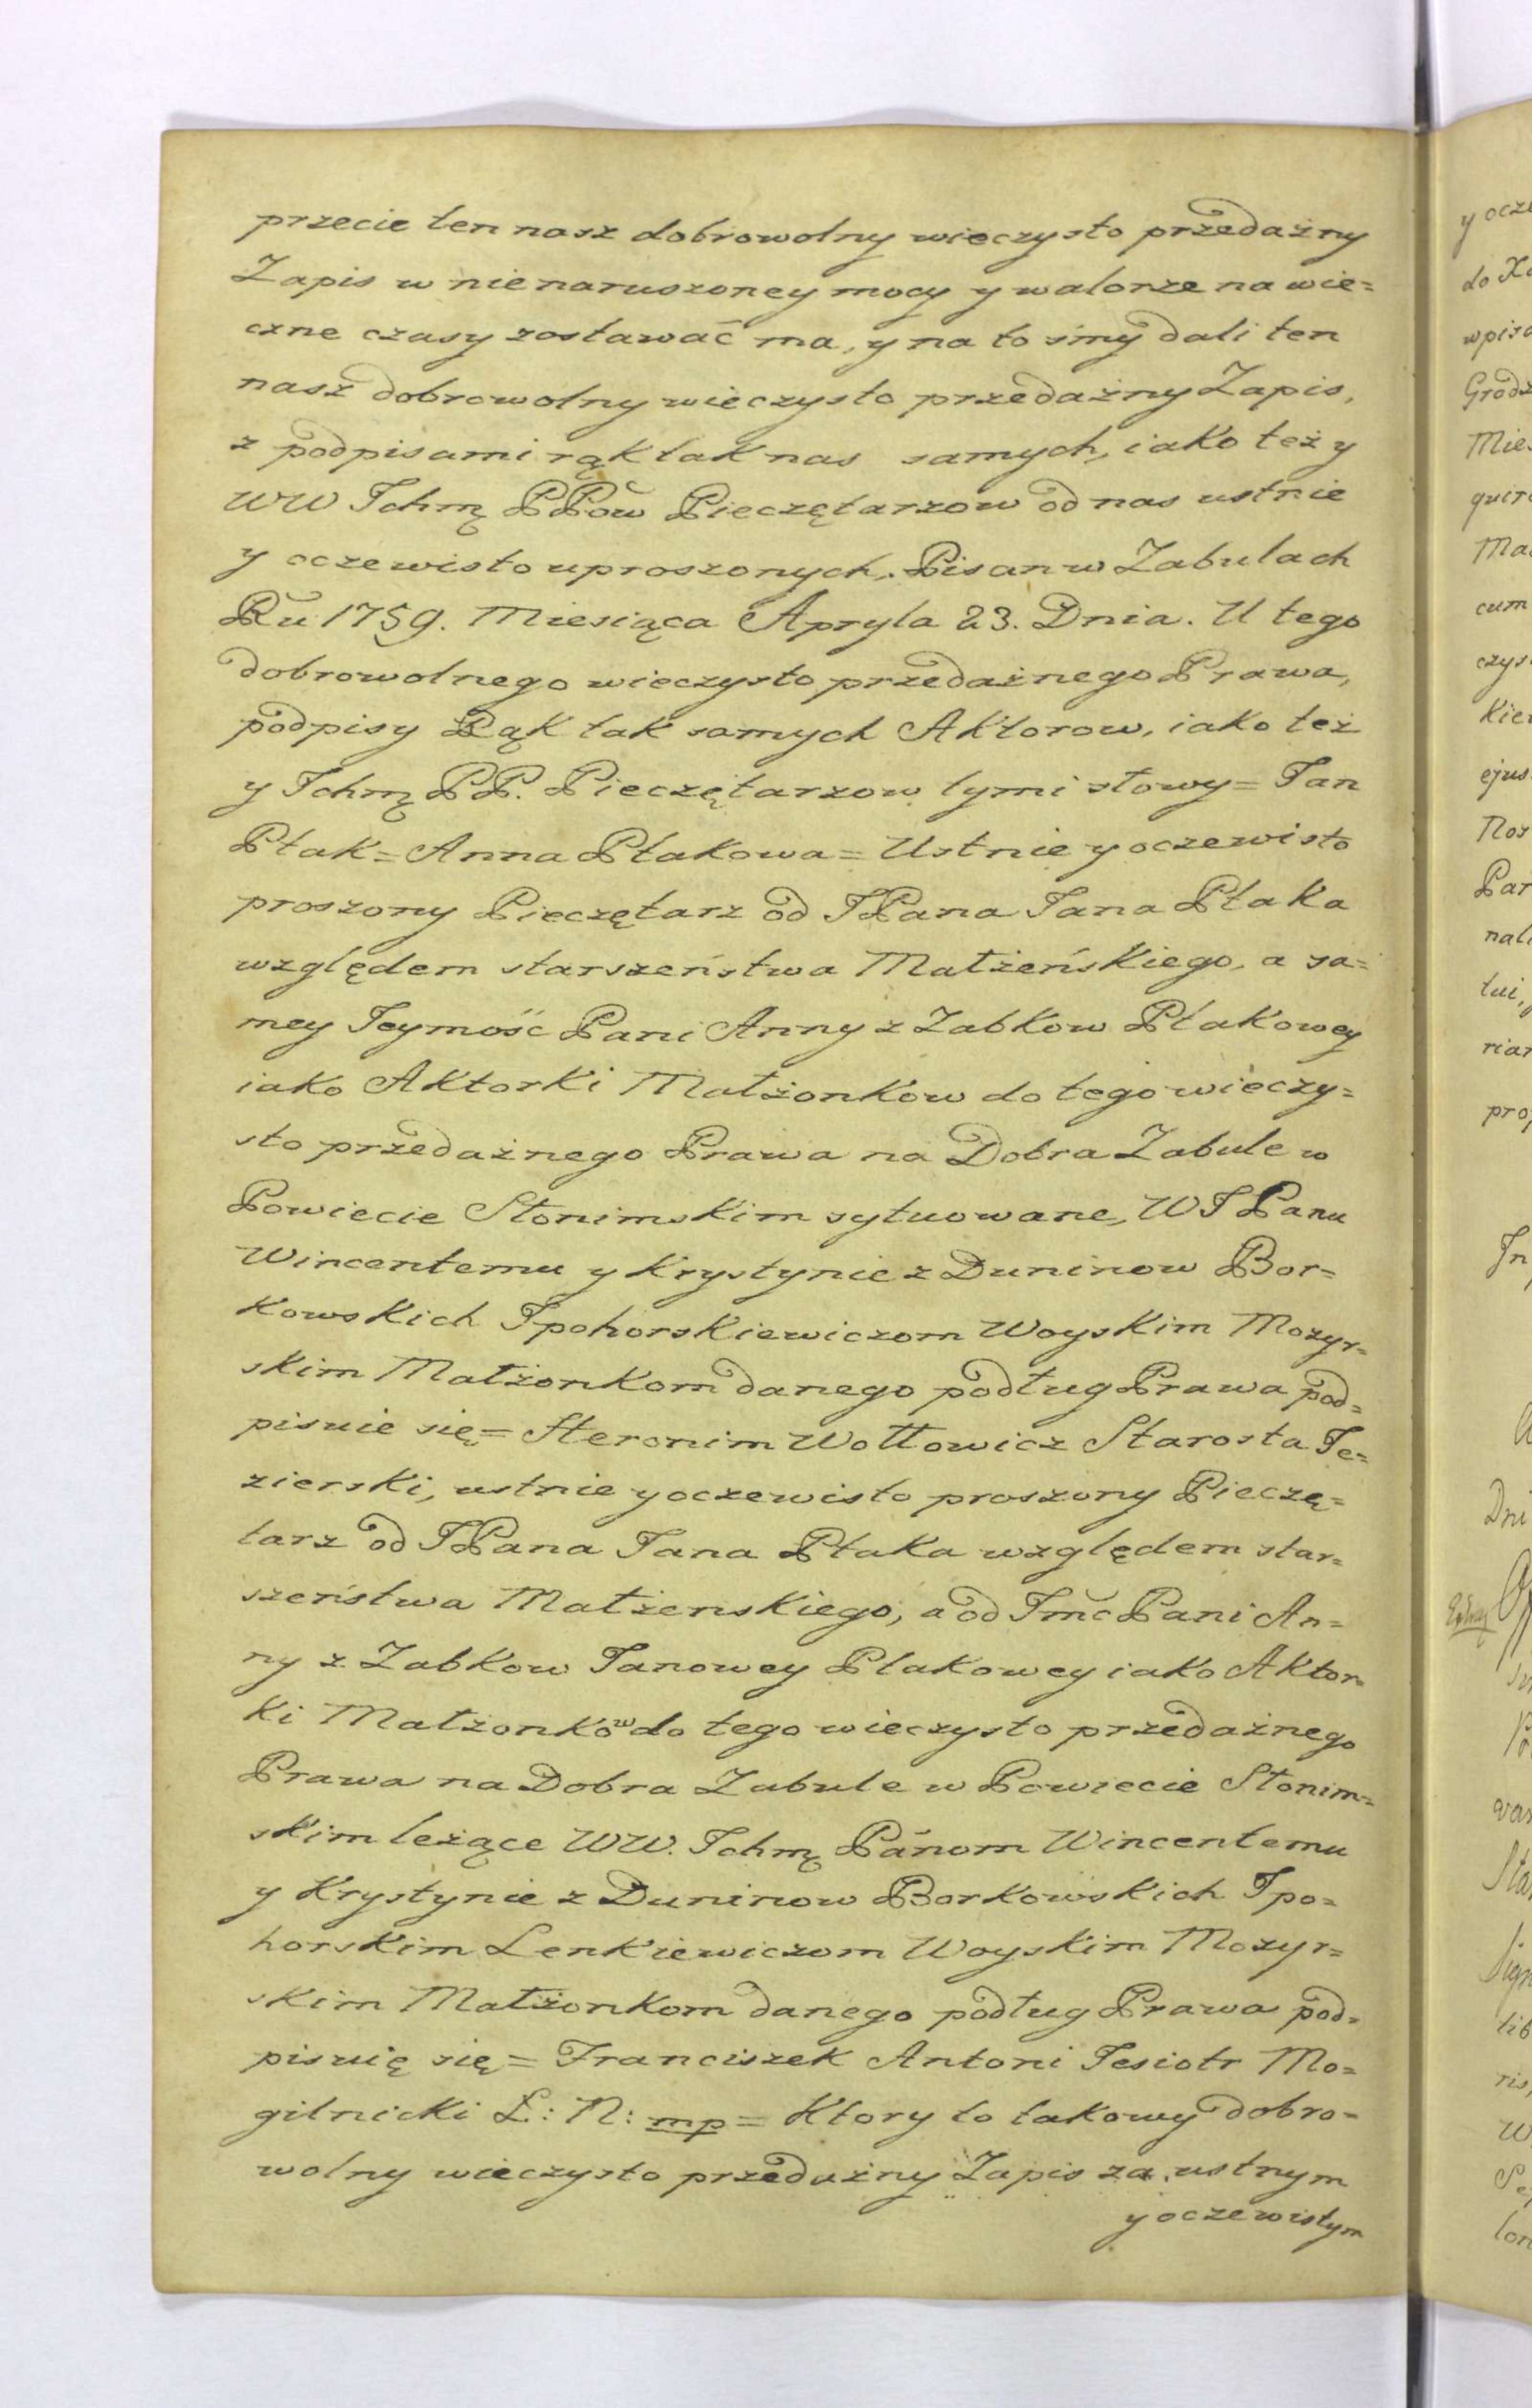 przecie ten nasz dobrowolny wieczysto przedażny
Zapis w nienaruszoney mocy y walorze na wie=
czne czasy zostawać ma, y na to śmy dali ten
nasz dobrowolny wieczysto przedażny Zapis,
z podpisami rąk tak nas samych, iako też y
WW Ichmę PPow Pieczętarzow od nas ustnie
y oczewisto uproszonych. Pisan w Zabulach
Ru 1759. Miesiąca Apryla 23. Dnia. U tego
dobrowolnego wieczysto przedażnego Prawa,
podpisy Rąk tak samych Aktorow, iako też
y Ichmę PP. Pieczętarzow tymi słowy = Jan
Ptak = Anna Ptakowa = Ustnie y oczewisto
proszony Pieczętarz od JPana Jana Ptaka
względem starszeństwa Małżeńskiego, a sa=
mey Jeymość Pani Anny z Zabkow Ptakowey
iako Aktorki Małżonkow do tego wieczy=
sto przedażnego Prawa na Dobra Zabule w
Powiecie Słonimskim sytuowane, WJPanu
Wincentemu y Krystynie z Duninow Bor=
kowskich Ipohorskiewiczom Woyskim Mozyr=
skim Małżonkom danego podług Prawa pod=
pisuie się = Heronim Wołłowicz Starosta Je=
zierski, ustnie y oczewisto proszony Pieczę=
tarz od JPana Jana Ptaka względem star=
szeństwa Małżenskiego, a od Jmc Pani An=
ny z Zabkow Janowey Ptakowey iako Aktor=
ki Małżonków do tego wieczysto przedażnego
Prawa na Dobra Zabule w Powiecie Słonim=
skim leżące WW. Ichmę Panom Wincentemu
y Krystynie z Duninow Borkowskich Ipo=
horskim Lenkiewiczom Woyskim Mozyr=
skim Małżonkom danego podług Prawa pod=
pisuię się = Franciszek Antoni Jesiotr Mo=
gilnicki Ł: N: mp = Ktory to takowy dobro=
wolny wieczysto przedażny Zapis za ustnym
y oczewistym